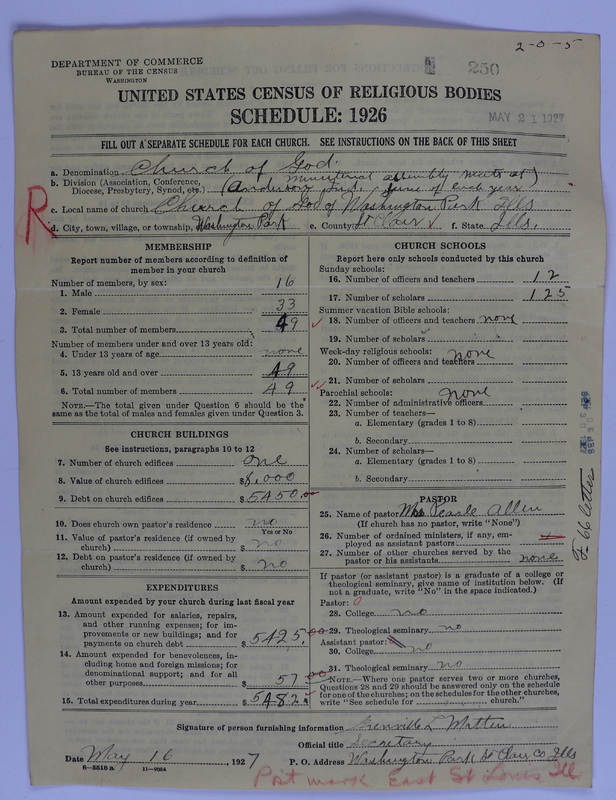 2-0-5
250
DEPARTMENT OF COMMERCE
BUREAU OF THE CENSUS
WASHINGTON
UNITED STATES CENSUS OF RELIGIOUS BODIES
SCHEDULE: 1926
MAY 21 1927
FILL OUT A SEPARATE SCHEDULE FOR EACH CHURCH. SEE INSTRUCTIONS ON THE BACK OF THIS SHEET
a. Denomination Church of God.
b. Division (Association, Conference, Diocese, Presbytery, Synod, etc.) (ministerial assembly meets at Anderson Ind. June of each year)
R
c. Local name of church Church of God of Washington Park Ills
d. City, town, village, or township, Washington Park e. County St Clair f. State Ills.
MEMBERSHIP
Report number of members according to definition of
member in your church
Number of members, by sex:
1. Male 16
2. Female 33
3. Total number of members 49
Number of members under and over 13 years old:
4. Under 13 years of age none
5. 13 years old and over 49
6. Total number of members 49
NOTE.—The total given under Question 6 should be the
same as the total of males and females given under Question 3.
CHURCH BUILDINGS
See instructions, paragraphs 10 to 12
7. Number of church edifices one
8. Value of church edifices $8,000
9. Debt on church edifices $5450.00
10. Does church own pastor's residence no
Yes or No
11. Value of pastor's residence (if owned by
church) $ no
12. Debt on pastor's residence (if owned by
church) $ no
EXPENDITURES
Amount expended by your church during last fiscal year
13. Amount expended for salaries, repairs,
and other running expenses; for im-
provements or new buildings; and for
payments on church debt $5425.00
14. Amount expended for benevolences, in-
cluding home and foreign missions; for
denominational support; and for all
other purposes $57.00
15. Total expenditures during year $5482
CHURCH SCHOOLS
Report here only schools conducted by this church
Sunday schools:
16. Number of officers and teachers 12
17. Number of scholars 125
Summer vacation Bible schools:
18. Number of officers and teachers none
19. Number of scholars
Week-day religious schools:
20. Number of officers and teachers none
21. Number of scholars
Parochial schools:
22. Number of administrative officers none
23. Number of teachers—
a. Elementary (grades 1 to 8)
b. Secondary
24. Number of scholars—
a. Elementary (grades 1 to 8)
b. Secondary
PASTOR
25. Name of pastor Mrs Pearle Allen
(If church has no pastor, write "None")
26. Number of ordained ministers, if any, em-
ployed as assistant pastors
27. Number of other churches served by the
pastor or his assistants none
If pastor (or assistant pastor) is a graduate of a college or
theological seminary, give name of institution below. (If
not a graduate, write "No" in the space indicated.)
Pastor:
28. College no
29. Theological seminary no
Assistant pastor:
30. College no
31. Theological seminary no
NOTE.—Where one pastor serves two or more churches,
Questions 28 and 29 should be answered only on the schedule
for one of the churches; on the schedules for the other churches,
write "See schedule for church."
F 66 letter
Signature of person furnishing information
Official title Secretary
Date May 16, 1927
P. O. Address Washington Park St Clair Co Ills
8-5518a 11-9054
Post mark East St Louis Ill